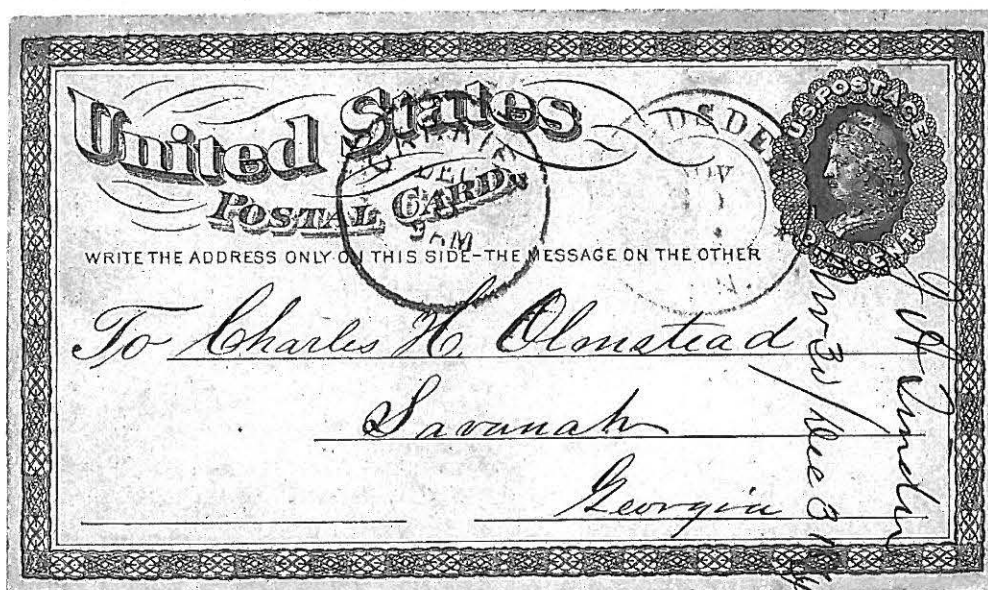 United States
POSTAL CARD
U.S. POSTAGE
WRITE THE ADDRESS ONLY ON THIS SIDE-THE MESSAGE ON THE OTHER
To Charles H. Olmstead
Savanah
Georgia
DEC
9 AM
NOV
Nov 30/Dec 3